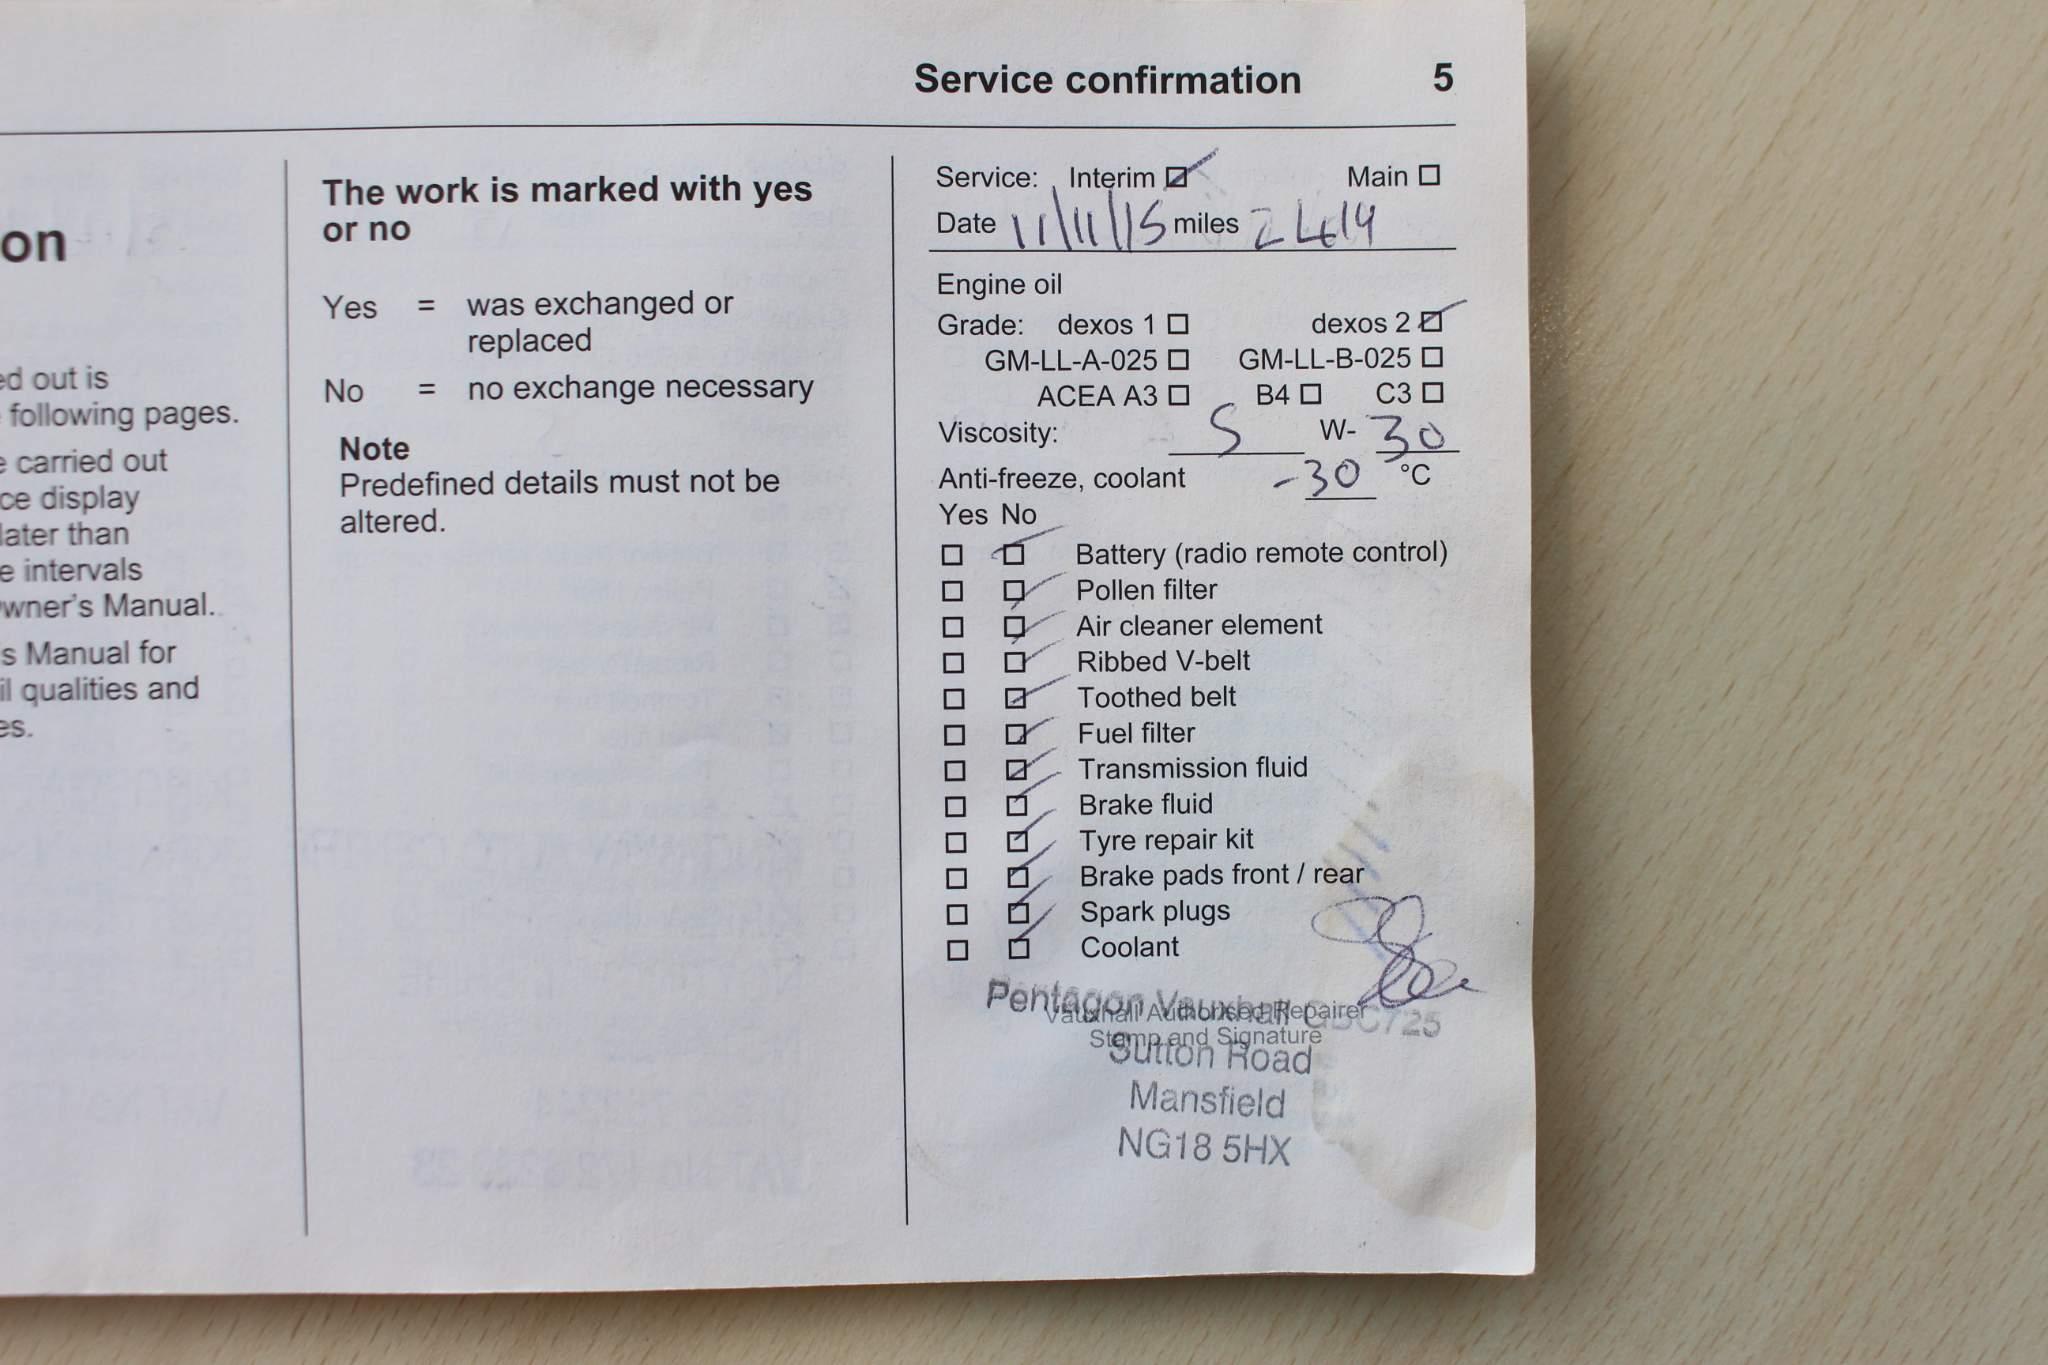 Service confirmation 5
on
ed out is
following pages.
e carried out
ce display
later than
e intervals
wner's Manual.
s Manual for
il qualities and
es.
The work is marked with yes
or no
Yes = was exchanged or
replaced
No = no exchange necessary
Note
Predefined details must not be
altered.
Service: Interim Main
Date 11/11/15 miles 2419
Engine oil
Grade: dexos 1 dexos 2
GM-LL-A-025 GM-LL-B-025
ACEA A3 B4 C3
Viscosity: 5 W- 30
Anti-freeze, coolant -30 °C
Yes No
Battery (radio remote control)
Pollen filter
Air cleaner element
Ribbed V-belt
Toothed belt
Fuel filter
Transmission fluid
Brake fluid
Tyre repair kit
Brake pads front / rear
Spark plugs
Coolant
Pentagon Vauxhall GBC725
Vauxhall Authorised Repairer
Stamp and Signature
Sutton Road
Mansfield
NG18 5HX